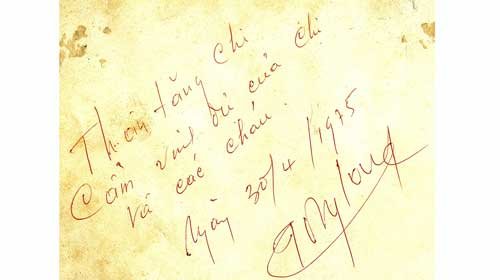 Thân tặng chị
Cầm của chị
và các cháu.
Ngày 30/4/1975